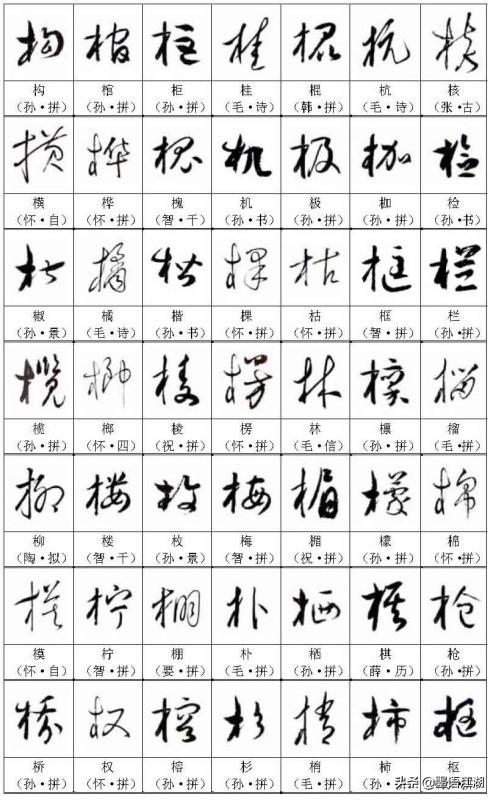 构 棺 柜 桂 棍 杭 核
（孙·拼） （孙·拼） （孙·拼） （毛·诗） （韩·拼） （毛·诗） （张·古）
横 桦 槐 机 极 枷 检
（怀·自） （怀·拼） （智·千） （孙·书） （孙·拼） （孙·拼） （孙·书）
椒 橘 楷 棵 枯 框 栏
（孙·景） （毛·诗） （孙·书） （怀·拼） （怀·拼） （智·拼） （孙·拼）
榄 榔 棱 楞 林 檩 榴
（孙·拼） （怀·四） （祝·拼） （怀·拼） （毛·信） （孙·拼） （毛·拼）
柳 楼 枚 梅 楣 檬 棉
（陶·拟） （智·千） （孙·景） （智·拼） （祝·拼） （孙·拼） （怀·拼）
模 柠 棚 朴 栖 棋 枪
（怀·自） （智·拼） （要·拼） （毛·拼） （孙·拼） （薛·历） （孙·拼）
桥 权 榕 杉 梢 柿 枢
（孙·拼） （怀·拼） （孙·拼） （孙·拼） （毛·拼）
头条 @墨语江湖